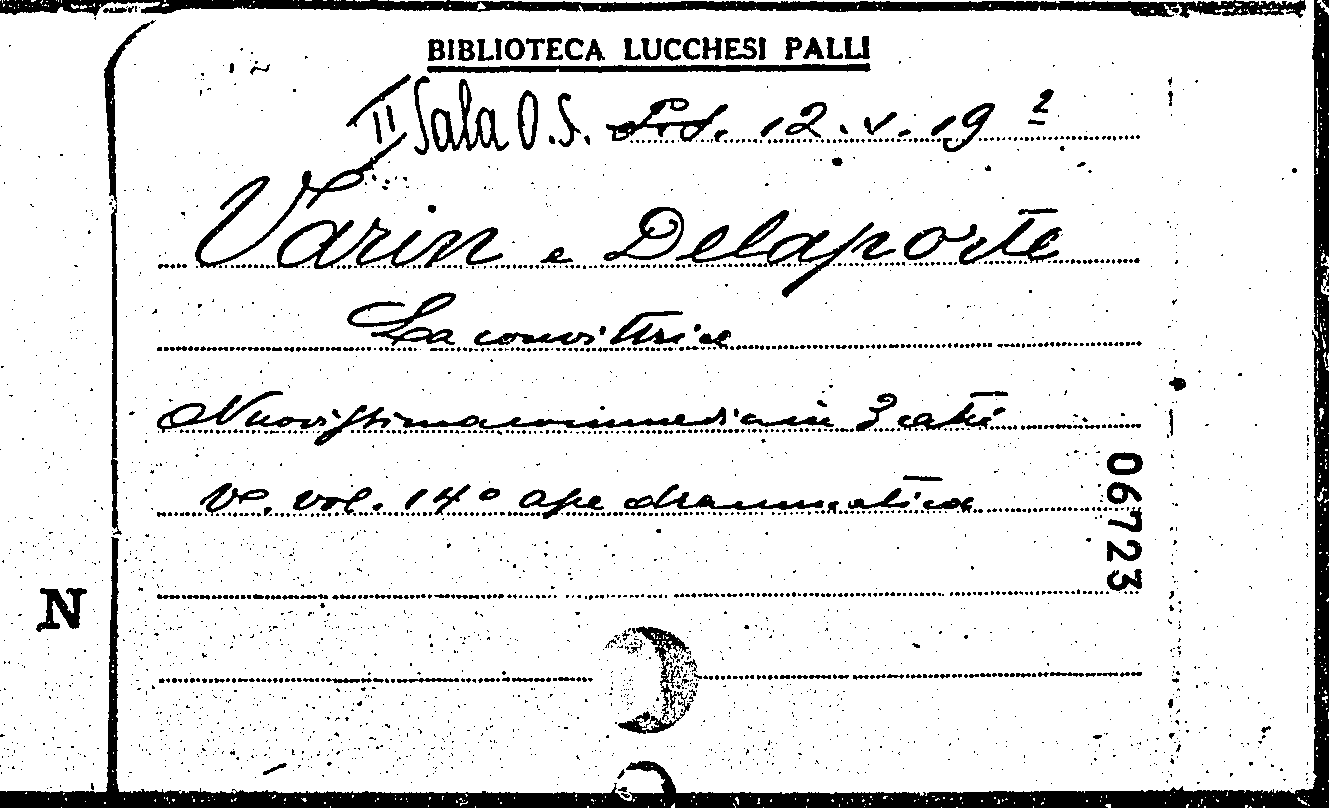 BIBLIOTECA LUCCHESI PALLI
II Sala O.S. 12.V.19²
Varin e Delaporte
La convittrice
Nuovissima commedia in 3 atti
Ve. vol. 14° ape drammatica
06723
N